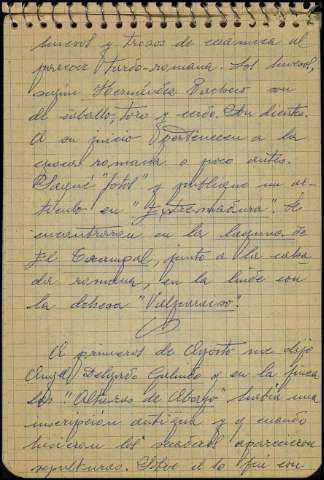 huesos y trozos de cerámica al
parecer tardo-romana. Los huesos,
según Hernández Pacheco son
de caballo, toro y cerdo. Son dientes.
A su juicio pertenecen a la
época romana o poco antes.
Saqué "fotos" y publiqué un ar-
tículo en "Extremadura". Se
encontraron en la laguna de
El Escampal, junto a la calza
da romana, en la linde con
la dehesa "Valparaiso".
A primeros de Agosto me dijo
Delgado y en la finca
"Alturas de Abajo" había una
inscripción antigua y q cuando
hicieron los aparecieron
sepulturas. a lo fui con